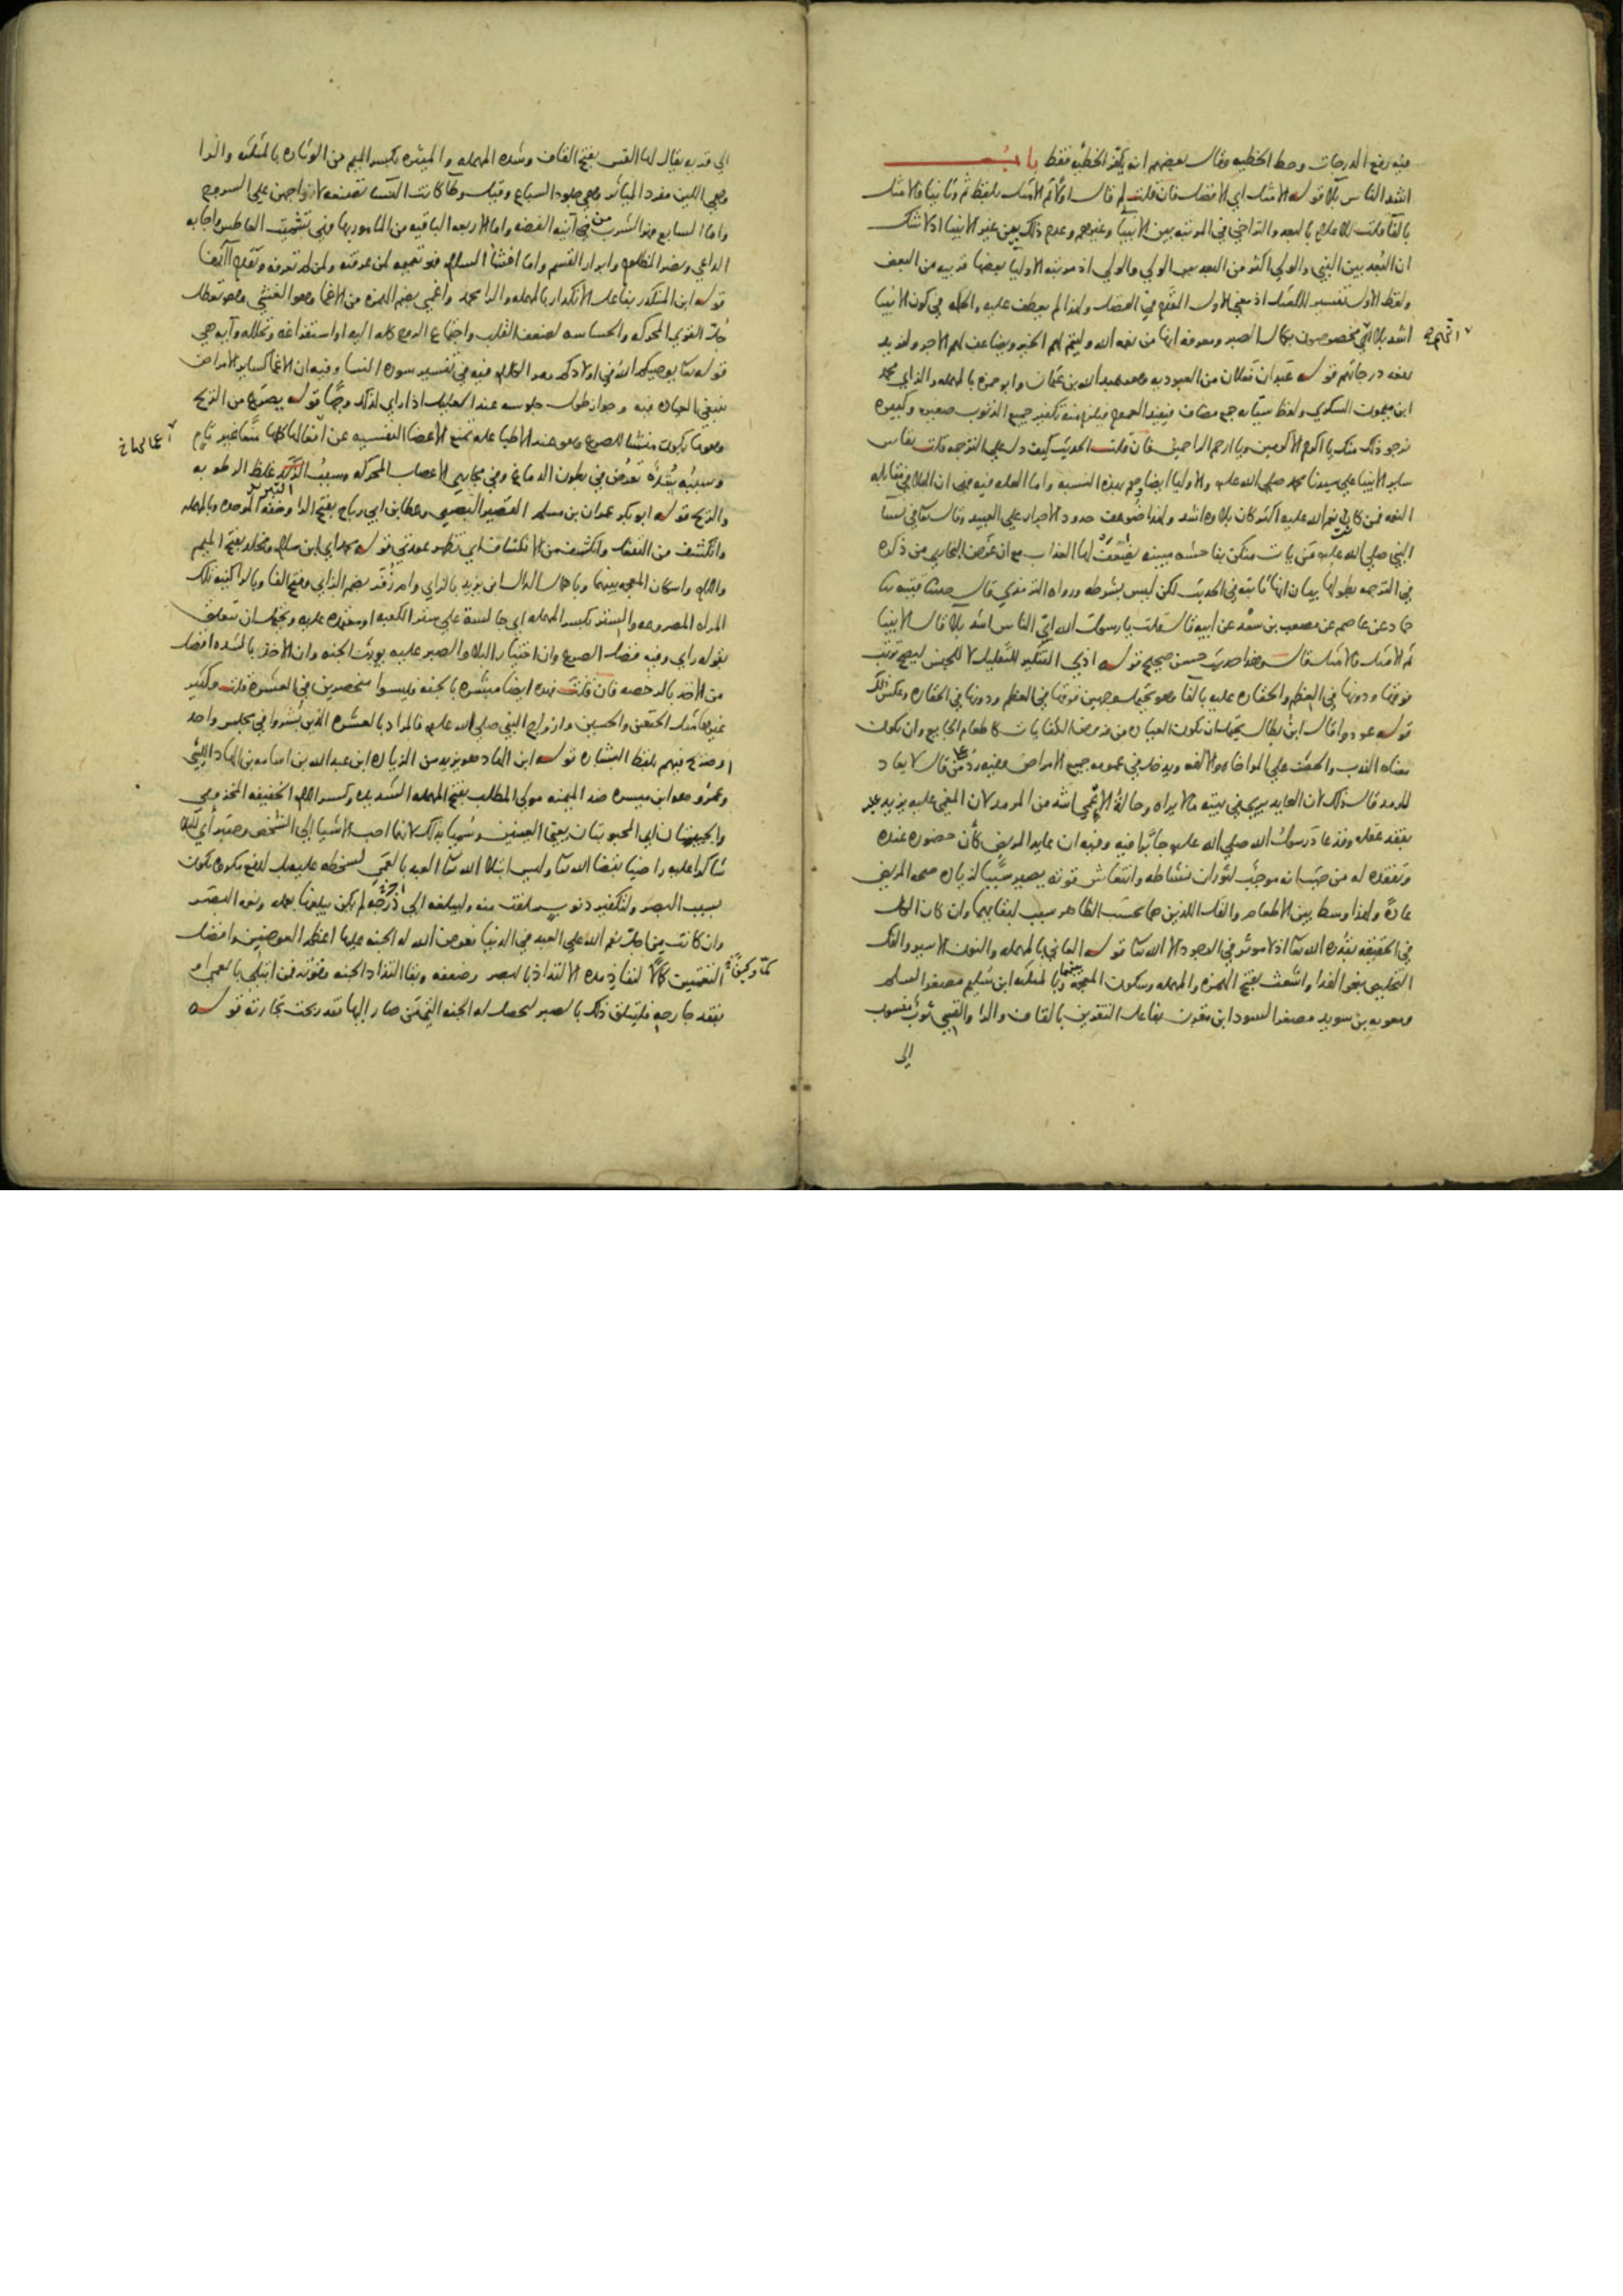 فيه رفع الدرجات وحط الخطيه وقال بعضهم انه يكفر الخطيه فقط باب
اشد الناس بلا قوله الامثل اي الافضل فان قلت لم قال اولا ثم الامثل بلفظ ثم وثانيا فالامثل
بالفا قلت للاعلام بالبعد والتراخي في المرتبه بين الانبيا وغيرهم وعدم ذلك بين غير الانبيا اذ لا شك
ان البعد بين النبي والولي اكثر من البعد بين الولي والولي اذ مرتبه الاوليا بعضها قريبه من البعض
ولفظ الاول تفسير للامثل اذ معني الاول المقدم في الفضل ولهذا لم يعطف عليه والحكمه في كون الانبيا
اشد بلا انهم مخصوصون بكمال الصبر ومعرفه انها من نعمه الله وليتم لهم الخير ويضاعف لهم الاجر
درجاتهم قوله عبدان فعلان من العبوديه وهو عبدالله بن عثمان وابو حمزه بالمهمله والزاي محمد
ابن ميمون السكري ولفظ سيئاته جمع مضاف فيفيد العموم فيلزم منه تكفير جميع الذنوب صغيره وكبيره
نرجو ذلك منك يا اكرم الاكرمين ويا ارحم الراحمين فان قلت الحديث كيف دل علي الترجمه قلت يقاس
ساير الانبيا علي سيدنا محمد صلي الله عليه والاوليا ايضا بهم بهذه النسبه واما العله فيه فهي ان البلا في مقابله
النعمه فمن كان نعم الله عليه اكثر كان بلاوه اشد ولهذا ضوعف حدود الاحرار علي العبيد وقال تعالي في نسا
النبي صلي الله عليه من يات منكن بفاحشه مبينه يضعف لها العذاب مع ان غرض البخاري من ذكره
في الترجمه بطولها بيان انها ثابته في الحديث لكن ليس بشرطه ورواه الترمذي قال حدثنا قتيبه ثنا
حماد عن عاصم عن مصعب بن سعد عن ابيه قال قلت يا رسول الله اي الناس اشد بلا قال الانبيا
ثم الامثل فالامثل قال وهذا حديث حسن صحيح قوله اذي التنكير للتقليل لا للجنس ليصح ترتب
فوقها ودونها في العظم والحقاره عليه بالفا وهو يحتمل وجهين فوقها في العظم ودونها في الحقاره وعكس ذلك
قوله عودوا قال ابن بطال يحتمل ان تكون العياده من فروض الكفايات كاطعام الجايع وان يكون
معناه الندب والحث علي المواخاه والالفه ويدخل في عمومه جميع الامراض وفيه رد علي من قال لا يعاد
للرمد قال وذلك لان العايد يري في بيته مالا يراه وحالة الاغمي اشد من الرمد لان المغمي عليه يزيد عليه
بفقد عقله وقد عاد رسول الله صلي الله عليه جابرا فيه وفيه ان عايد المريض كان حضوره عنده
وتفقده له من حيث انه موجب لثوران نشاطه وانتعاش قوته يصير سببا لزياده صحه المريض
عادة ولهذا وسط بين الاطعام والفك اللذين هما بحسب الظاهر سبب لبقايهما وان كان الكل
في الحقيقه بقدره الله تعالي اذ لا موثر في الوجود الا الله تعالي قوله العاني بالمهمله والنون الاسير والفك
التخليص بنحو الفدا واشعث بفتح الهمزه والمهمله وسكون المعجمه بينهما وبالمثلثه ابن سليم مصغر السلم
ومعويه بن سويد مصغر السود ابن مقرن بفاعل التقرين بالقاف والرا والقسي ثوب منسوب
الي
الي قريه يقال لها القس بفتح القاف وشده المهمله والميثره بكسر الميم من الوثاره بالمثلثه والرا
وهي اللين مفرد المياثر وهي جلود السباع وقيل وطا كانت النسا تصنعه لازواجهن علي السروج
واما السابع فهو الشرب من انيه الفضه واما الاربعه الباقيه من المامور بها فهي تشميت العاطس واجابه
الداعي ونصر المظلوم وابرار القسم واما افشا السلام فهو تعميمه لمن عرفته ولمن لم تعرفه وتقدم انفا
قوله ابن المنكدر بفاعل الانكدار بالمهمله والرا محمد واغمي بضم الهمزه من الاغما وهو الغشي وهو تعطل
جل القوي المحركه والحساسه لضعف القلب واجتماع الروح كله اليه او استفراغه وتحلله وآيه هي
قوله تعالي يوصيكم الله في اولادكم ومر الكلام فيه في تفسير سوره النسا وفيه ان الاغما كساير الامراض
ينبغي العياده فيه وجواز طول جلوسه عند العليل اذا راي لذلك وجها قوله يصرع من الريح
وهو ما يكون منشا للصرع وهو عند الاطبا علة تمنع الاعضا النفسيه عن افعالها كلها منعا غير تام
وسببه سدة تعرض في بطون الدماغ وفي مجاري الاعصاب المحركه وسبب الزبد غلظ الرطوبه
والريح قوله ابو بكر عمران بن مسلم القصير البصري وعطا بن ابي رباح بفتح الرا وخفه الموحده وبالمهمله
واتكشف من التفعل وانكشف من الانكشاف اي تظهر عورتي قوله محمد اي ابن سلام ومخلد بفتح الميم
واللام واسكان المعجمه بينهما وباهمال الدال ابن يزيد بالزاي وام زفر بضم الزاي وفتح الفا وبالرا كنيه تلك
المراه المصروعه والستر بكسر المهمله اي جالسة علي ستر الكعبه او معتمده عليه ويحتمل ان يتعلق
بقوله راي وفيه فضل الصرع وان اختيار البلا والصبر عليه يورث الجنه وان الاخذ بالشده افضل
من الاخذ بالرخصه فان قلت فهذه ايضا مبشره بالجنه فليسوا منحصرين في العشره قلت وكثير
غيرها مثل الحسن والحسين وازواج النبي صلي الله عليه فالمراد بالعشره الذين بشروا في مجلس واحد
او صرح فيهم بلفظ البشاره قوله ابن الهاد هو يزيد من الزياده ابن عبدالله بن اسامه بن الهاد الليثي
وعمرو هو ابن ميسره ضد الميمنه مولي المطلب بفتح المهمله الشديده وكسر اللام الخفيفه المخزومي
والحبيبتان اي المحبوبتان يعني العينين وسميا بذلك لانهما احب الاشيا الي الشخص وصبر اي
شاكرا عليه راضيا بقضا الله تعالي وليس ابتلا الله تعالي العبد بالعمي لسخطه عليه بل لدفع مكروه يكون
بسبب البصر ولتكفير ذنوب سلفت منه وليبلغه الي درجه لم يكن يبلغها بعمله ونعمه البصر
وان كانت من اجل نعم الله علي العبد في الدنيا فعوض الله له الجنه عليها اعظم العوضين وافضل
النعمتين كما وكيفا لنفاد مده الالتذاذ بالبصر وضعفه وبقا التذاذ الجنه وقوته فمن ابتلي بالعمي او
بفقد جارحه فليتلق ذلك بالصبر ليحصل له الجنه التي من صار اليها فقد ربحت تجارته قوله